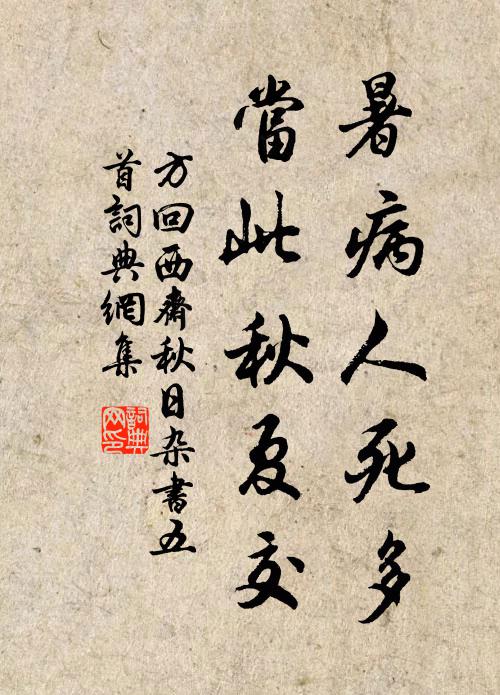 暑病人死多
當此秋夏交
方回西齋秋日杂書五
首詞典網集
詞典
网印